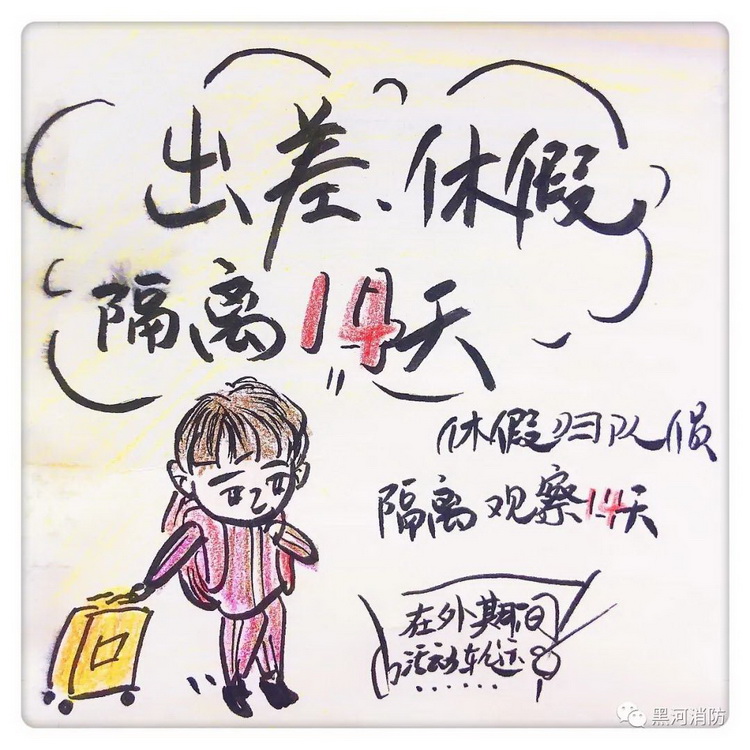 出差、休假
隔离14天
休假归队人员
隔离观察14天
在外期间
活动轨迹
......
黑河消防